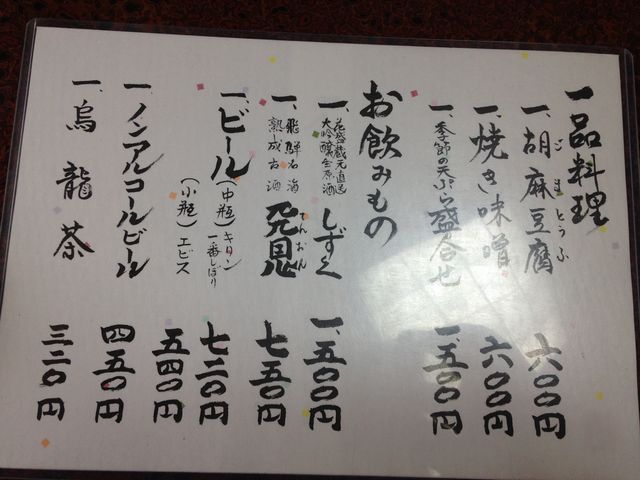 一品料理
一、胡麻豆腐 六〇〇円
ごまとうふ
一、焼き味噌 六〇〇円
一、季節の天ぷら盛合せ 一、五〇〇円
お飲みもの
一、花盛蔵元直送
大吟醸生原酒 しずく 一、五〇〇円
一、飛騨
熟成古酒 七五〇円
一、ビール (中瓶) キリン
一番しぼり 七二〇円
(小瓶) エビス 五四〇円
一、ノンアルコールビール 四五〇円
一、烏龍茶 三二〇円